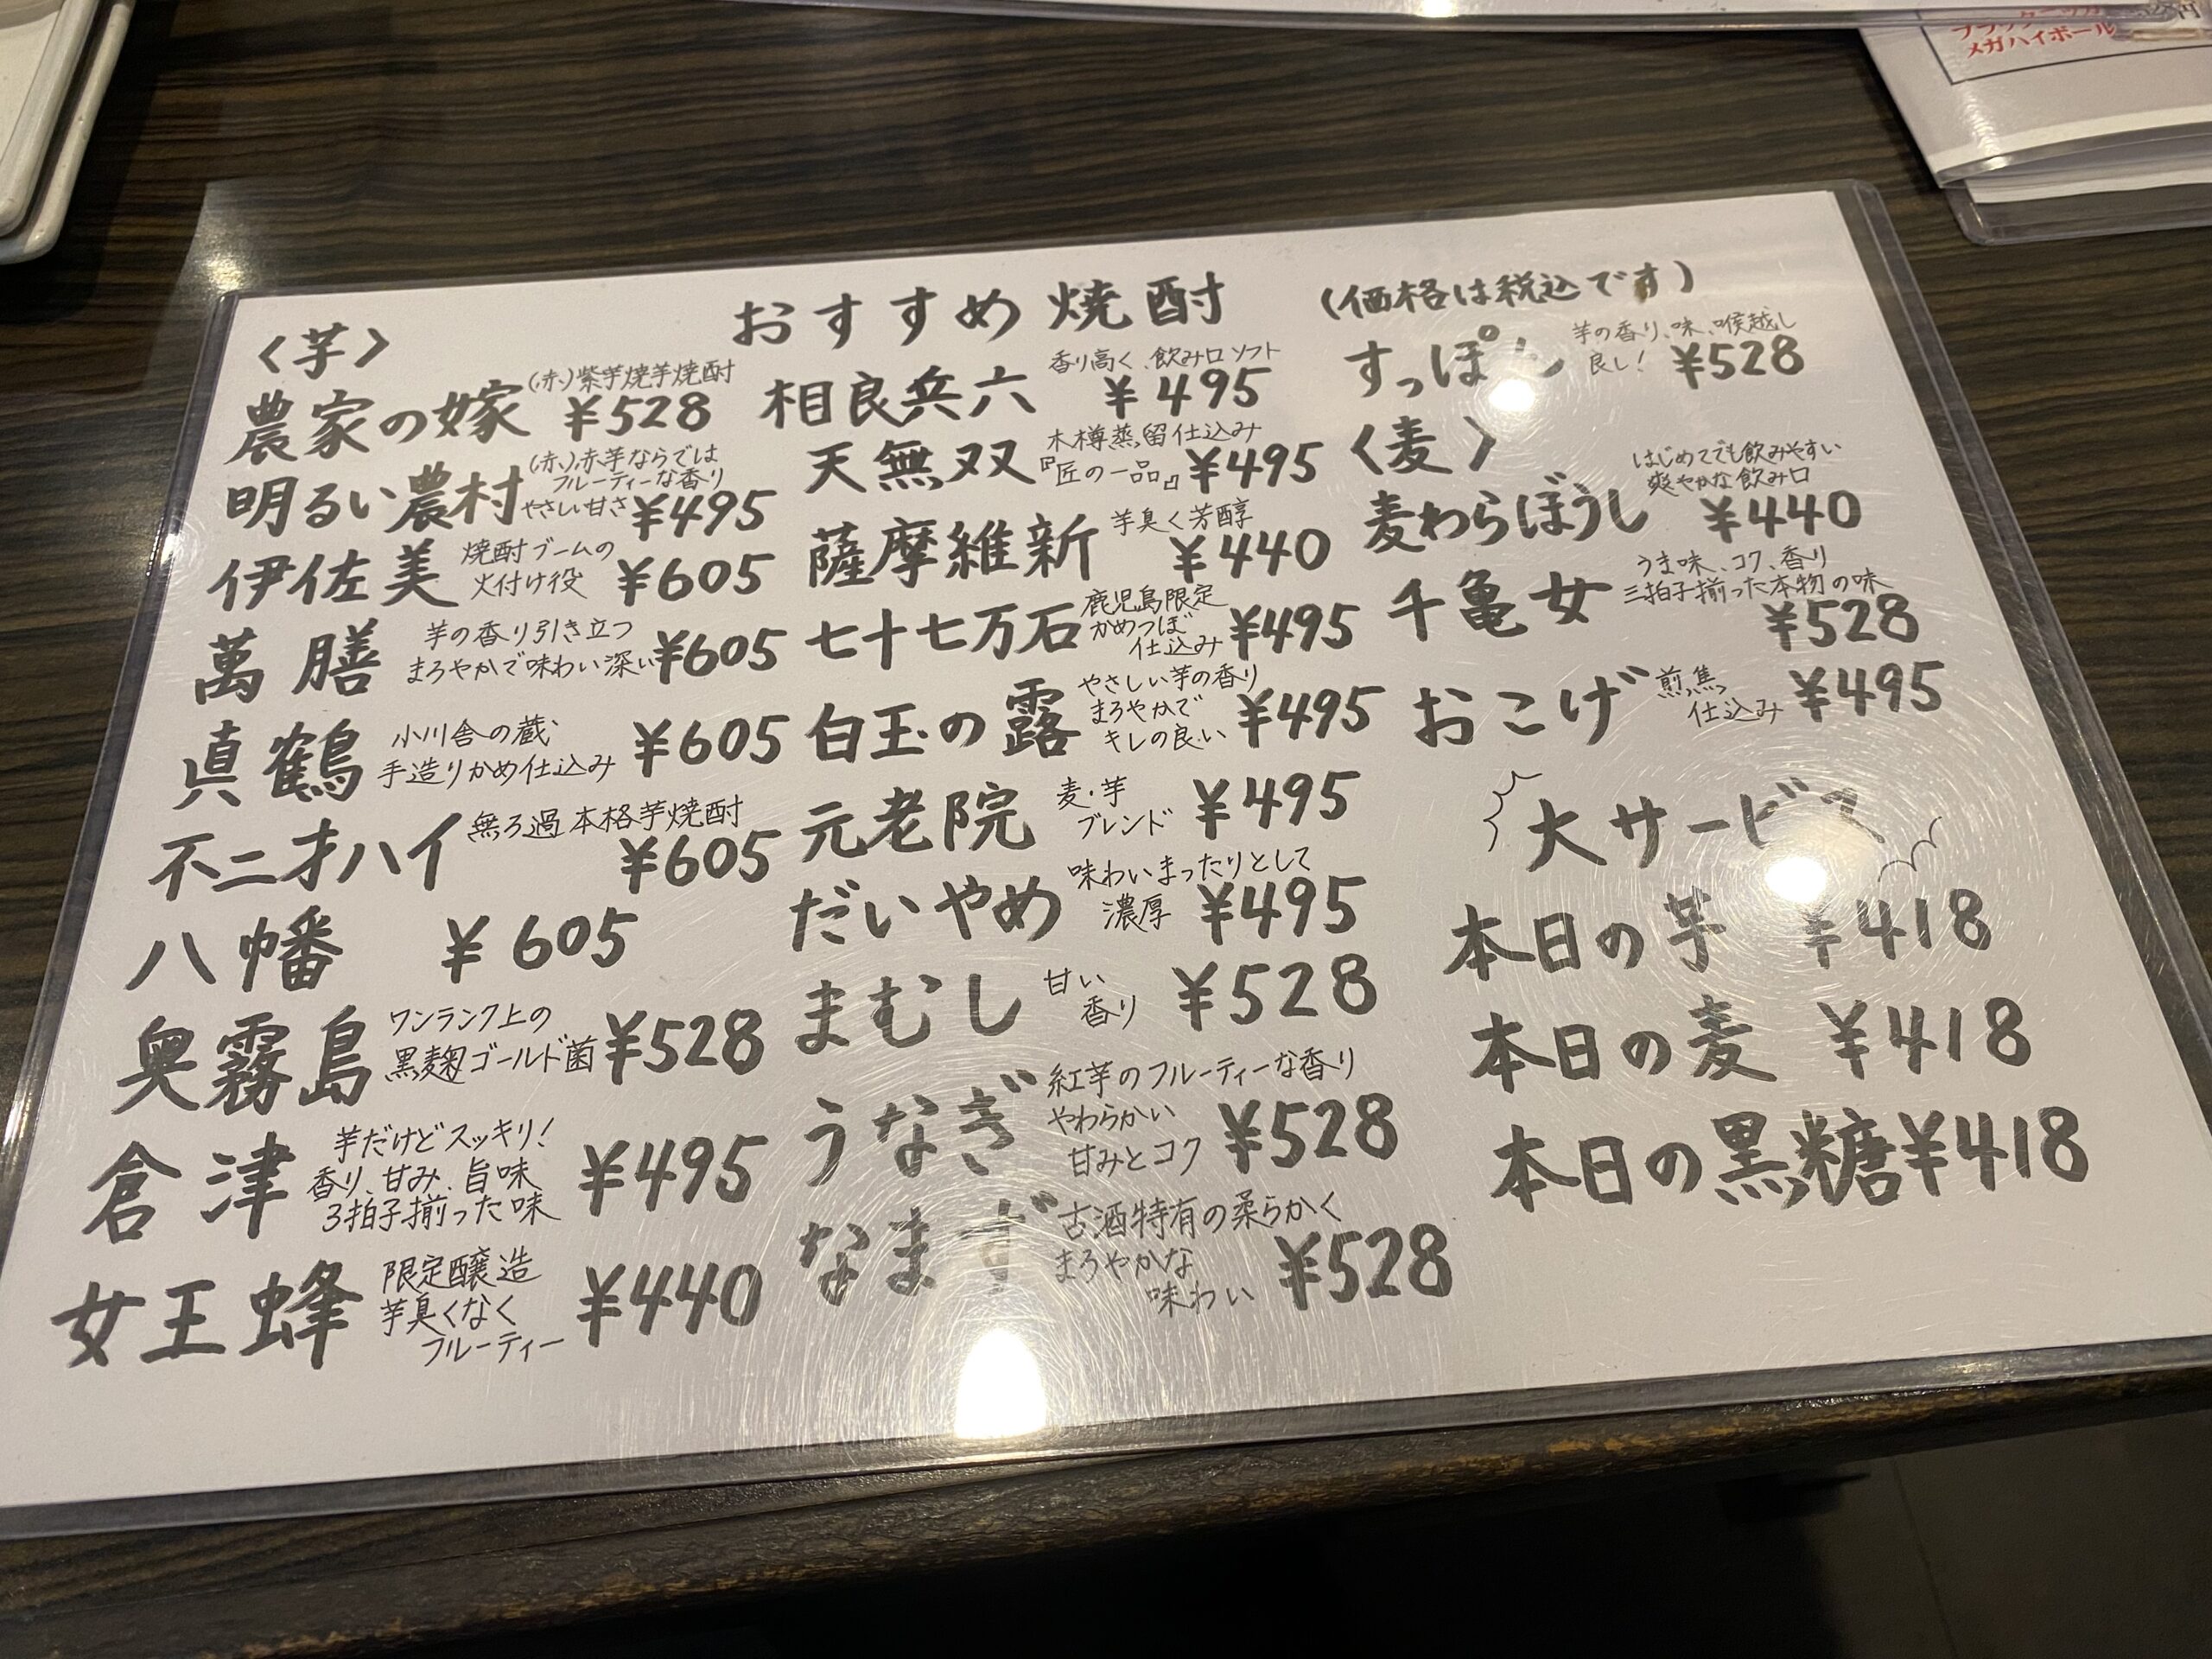 ブラックニッカ
メガハイボール
おすすめ焼酎 (価格は税込です)
〈芋〉
農家の嫁 (赤)紫芋焼芋焼酎 ¥528
明るい農村 (赤)赤芋ならでは
フルーティーな香り
やさしい甘さ ¥495
伊佐美 焼酎ブームの
火付け役 ¥605
萬膳 芋の香り引き立つ
まろやかで味わい深い ¥605
真鶴 小川舎の蔵
手造りかめ仕込み ¥605
不二才ハイ 無ろ過本格芋焼酎
¥605
八幡 ¥605
奥霧島 ワンランク上の
黒麹ゴールド菌 ¥528
倉津 芋だけどスッキリ!
香り、甘み、旨味
3拍子揃った味 ¥495
女王蜂 限定醸造
芋臭くなく
フルーティー ¥440
相良兵六 香り高く、飲み口ソフト
¥495
天無双 木樽蒸留仕込み
『匠の一品』 ¥495
薩摩維新 芋臭く芳醇
¥440
七十七万石 鹿児島限定
かめつぼ
仕込み ¥495
白玉の露 やさしい芋の香り
まろやかで
キレの良い ¥495
元老院 麦・芋
ブレンド ¥495
だいやめ 味わいまったりとして
濃厚 ¥495
まむし 甘い
香り ¥528
うなぎ 紅芋のフルーティーな香り
やわらかい
甘みとコク ¥528
なまず 古酒特有の柔らかく
まろやかな
味わい ¥528
すっぽん 芋の香り、味、喉越し
良し! ¥528
〈麦〉
麦わらぼうし はじめてでも飲みやすい
爽やかな飲み口
¥440
千亀女 うま味、コク、香り
三拍子揃った本物の味
¥528
おこげ 煎焦
仕込み ¥495
大サービス
本日の芋 ¥418
本日の麦 ¥418
本日の黒糖 ¥418